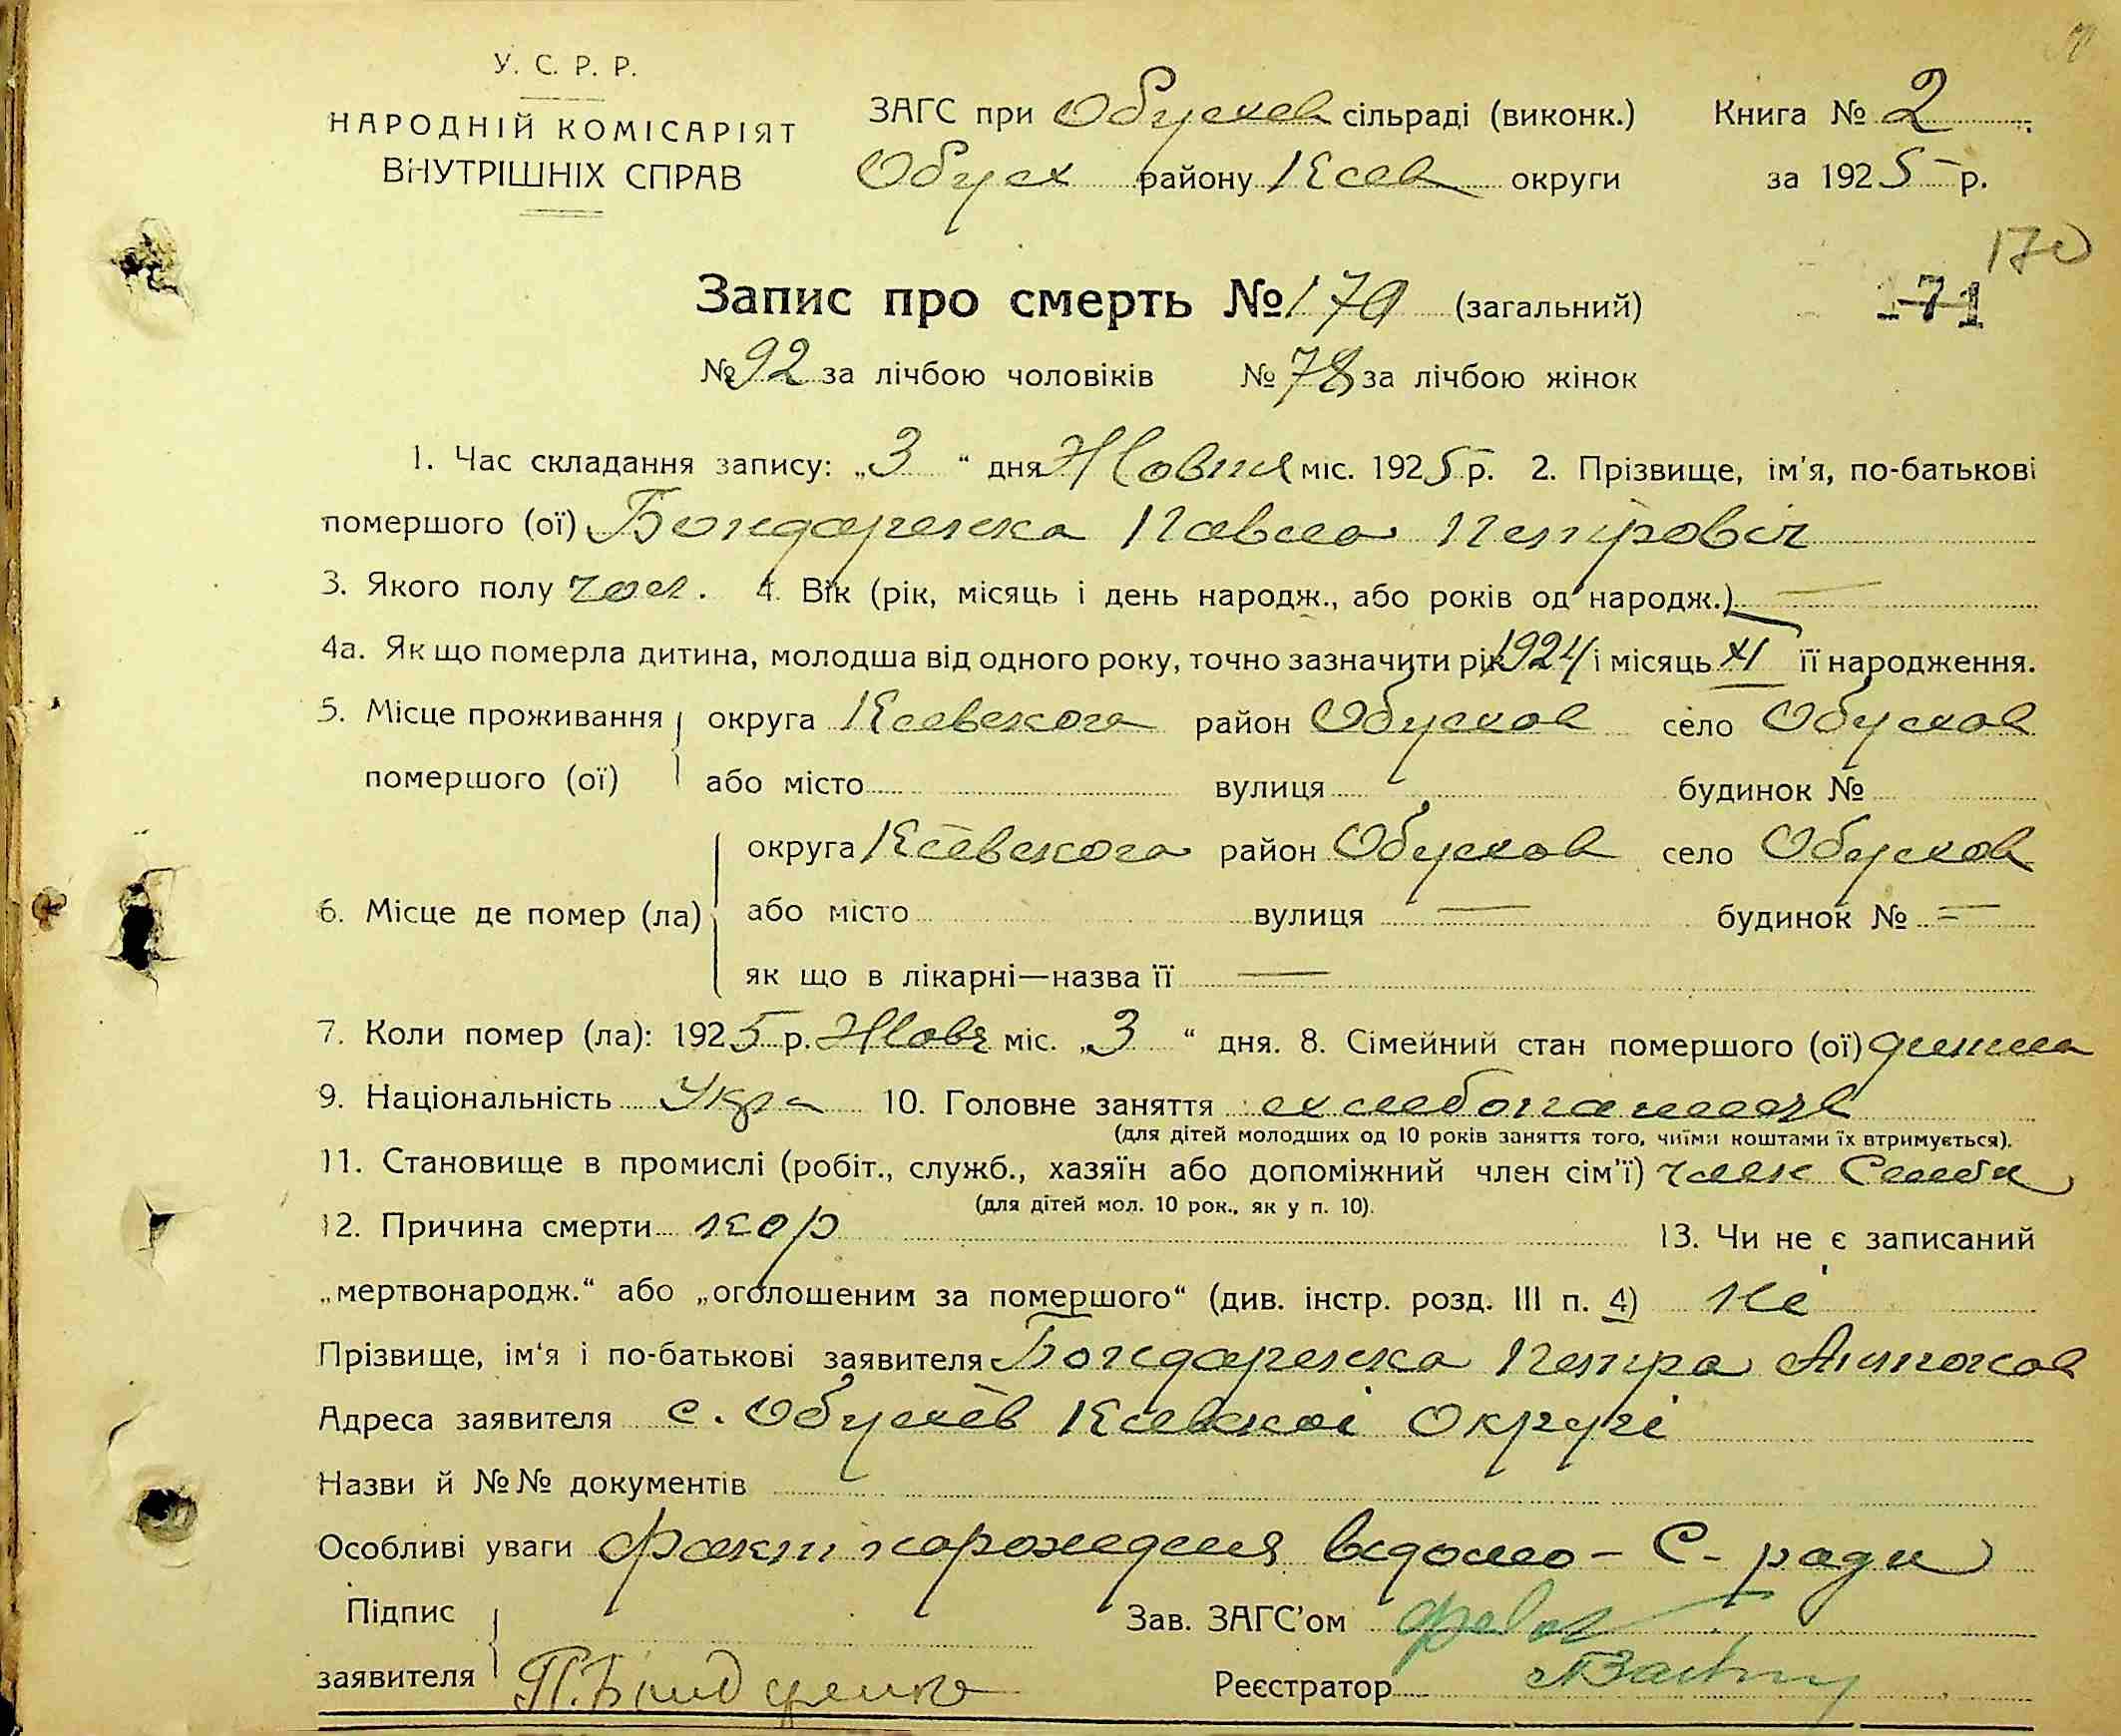 У. С. Р. Р.
НАРОДНІЙ КОМІСАРІЯТ
ВНУТРІШНІХ СПРАВ
ЗАГС при Обухов сільраді (виконк.)
Обух району Киев округи
Книга № 2
за 1925 р.
170
171
Запис про смерть № 170 (загальний)
№ 92 за лічбою чоловіків № 78 за лічбою жінок
1. Час складання запису: „3“ дня Жовтня міс. 1925 р. 2. Прізвище, ім'я, по-батькові
помершого (ої) Бондаренка Павла Петровіч
3. Якого полу чол. 4. Вік (рік, місяць і день народж., або років од народж.) —
4а. Як що померла дитина, молодша від одного року, точно зазначити рік 1924 і місяць XI її народження.
5. Місце проживання помершого (ої) округа Киевского район Обухов село Обухов
або місто вулиця будинок №
6. Місце де помер (ла) округа Киевского район Обухов село Обухов
або місто вулиця — будинок № —
як що в лікарні—назва її —
7. Коли помер (ла): 1925 р. Жовт міс. „3“ дня. 8. Сімейний стан помершого (ої) дитина
9. Національність Укра 10. Головне заняття
(для дітей молодших од 10 років заняття того, чиїми коштами їх втримується).
11. Становище в промислі (робіт., служб., хазяїн або допоміжний член сім'ї) член
(для дітей мол. 10 рок., як у п. 10).
12. Причина смерти кор 13. Чи не є записаний
„мертвонародж.“ або „оголошеним за помершого“ (див. інстр. розд. III п. 4) Не
Прізвище, ім'я і по-батькові заявителя Бондаренка Петра Антонов
Адреса заявителя с. Обухів Киевскоі Округі
Назви й №№ документів
Особливі уваги факт нарождения відомо – С- ради
Підпис заявителя П. Бондаренко
Зав. ЗАГС'ом
Реєстратор